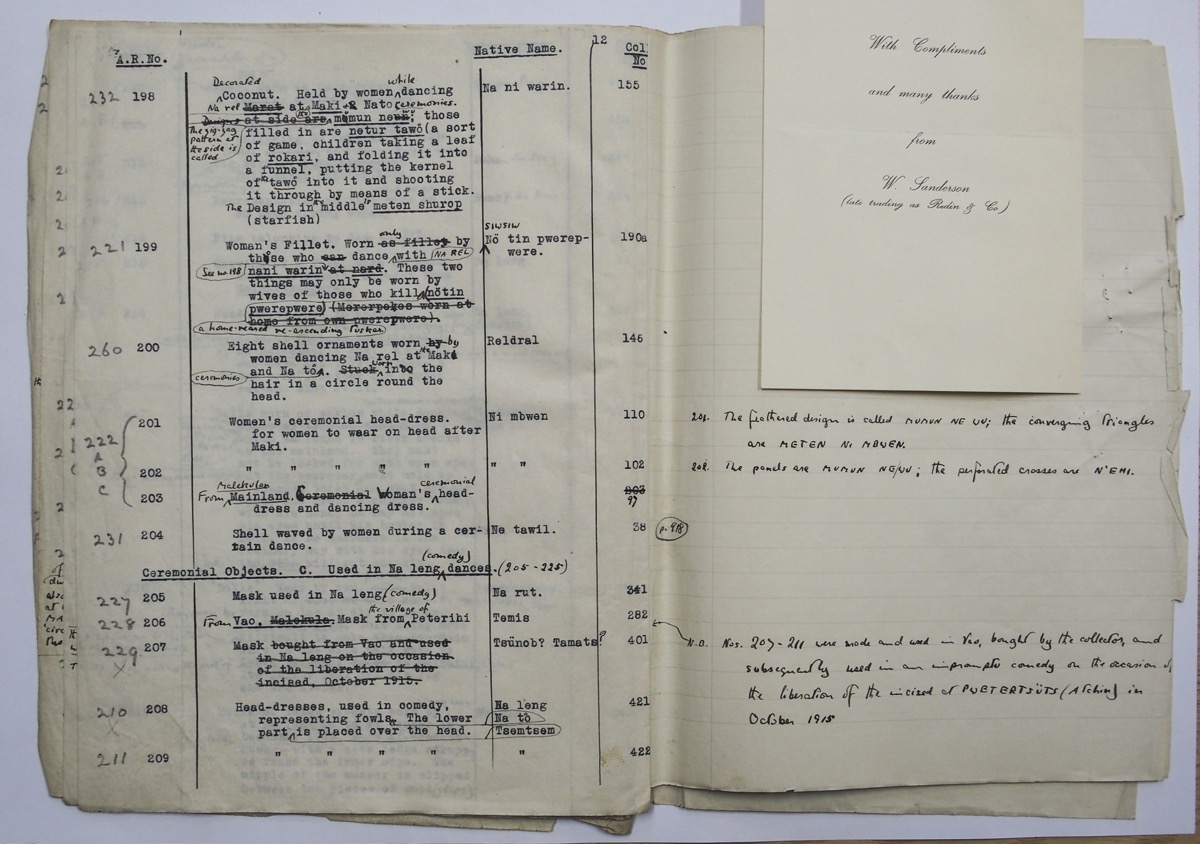 A.R.No.
Native Name.
12
Col
No
Decorated
while
232 198 Coconut. Held by women dancing Na ni warin. 155
Na rel Maret at Maki & Nato ceremonies.
Designs at side are mumun neuu; those
The zig-zag pattern at the side is called
filled in are netur tawô (a sort
of game, children taking a leaf
of rokari, and folding it into
a funnel, putting the kernel
of tawô into it and shooting
it through by means of a stick.
The Design in middle meten shurop
(starfish)
only
siwsiw
221 199 Woman's Fillet. Worn as fillet by Nö tin pwerep- 190a
those who can dance with NA REL were.
See no. 198 nani warin at nard. These two
things may only be worn by
wives of those who kill nötin
pwerpwere (Mererpekes worn at
home from own pwerepwere).
a home-reared re-ascending tusker
260 200 Eight shell ornaments worn by by Reldral 146
women dancing Na rel at Maki
and Na tô. Stuck worn into the
ceremonies
hair in a circle round the
head.
201 Women's ceremonial head-dress. Ni mbwen 110
for women to wear on head after
Maki.
222
A
B
C
202 " " " " " " " 102
Malekulan
ceremonial
203 From Mainland. Ceremonial Woman's head- 803
dress and dancing dress. 97
231 204 Shell waved by women during a cer- Ne tawil. 38
tain dance.
(comedy)
Ceremonial Objects. C. Used in Na leng dances. (205-225)
227 205 Mask used in Na leng (comedy) Na rut. 341
the village of
228 206 From Vao, Malekula. Mask from Peterihi Temis 282
229 207 Mask bought from Vao and used Tsünob? Tamats? 401
X
in Na leng on the occasion
of the liberation of the
incised, October 1915.
210 208 Head-dresses, used in comedy, Na leng 421
X
representing fowls. The lower Na tô
part is placed over the head. Tsemtsem
211 209 " " " " " 422
With Compliments
and many thanks
from
W. Sanderson
(late trading as Rudin & Co.)
201. The feathered design is called MUMUN NE UU; the converging triangles
are METEN NI MBWEN.
202. The panels are MUMUN NE/UU; the perforated crosses are N'EMI.
p. 918
N.B. Nos. 207-211 were made and used in Vao, bought by the collector, and
subsequently used in an impromptu comedy on the occasion of
the liberation of the incised at PWETERTSÜTS (Atchin) in
October 1915